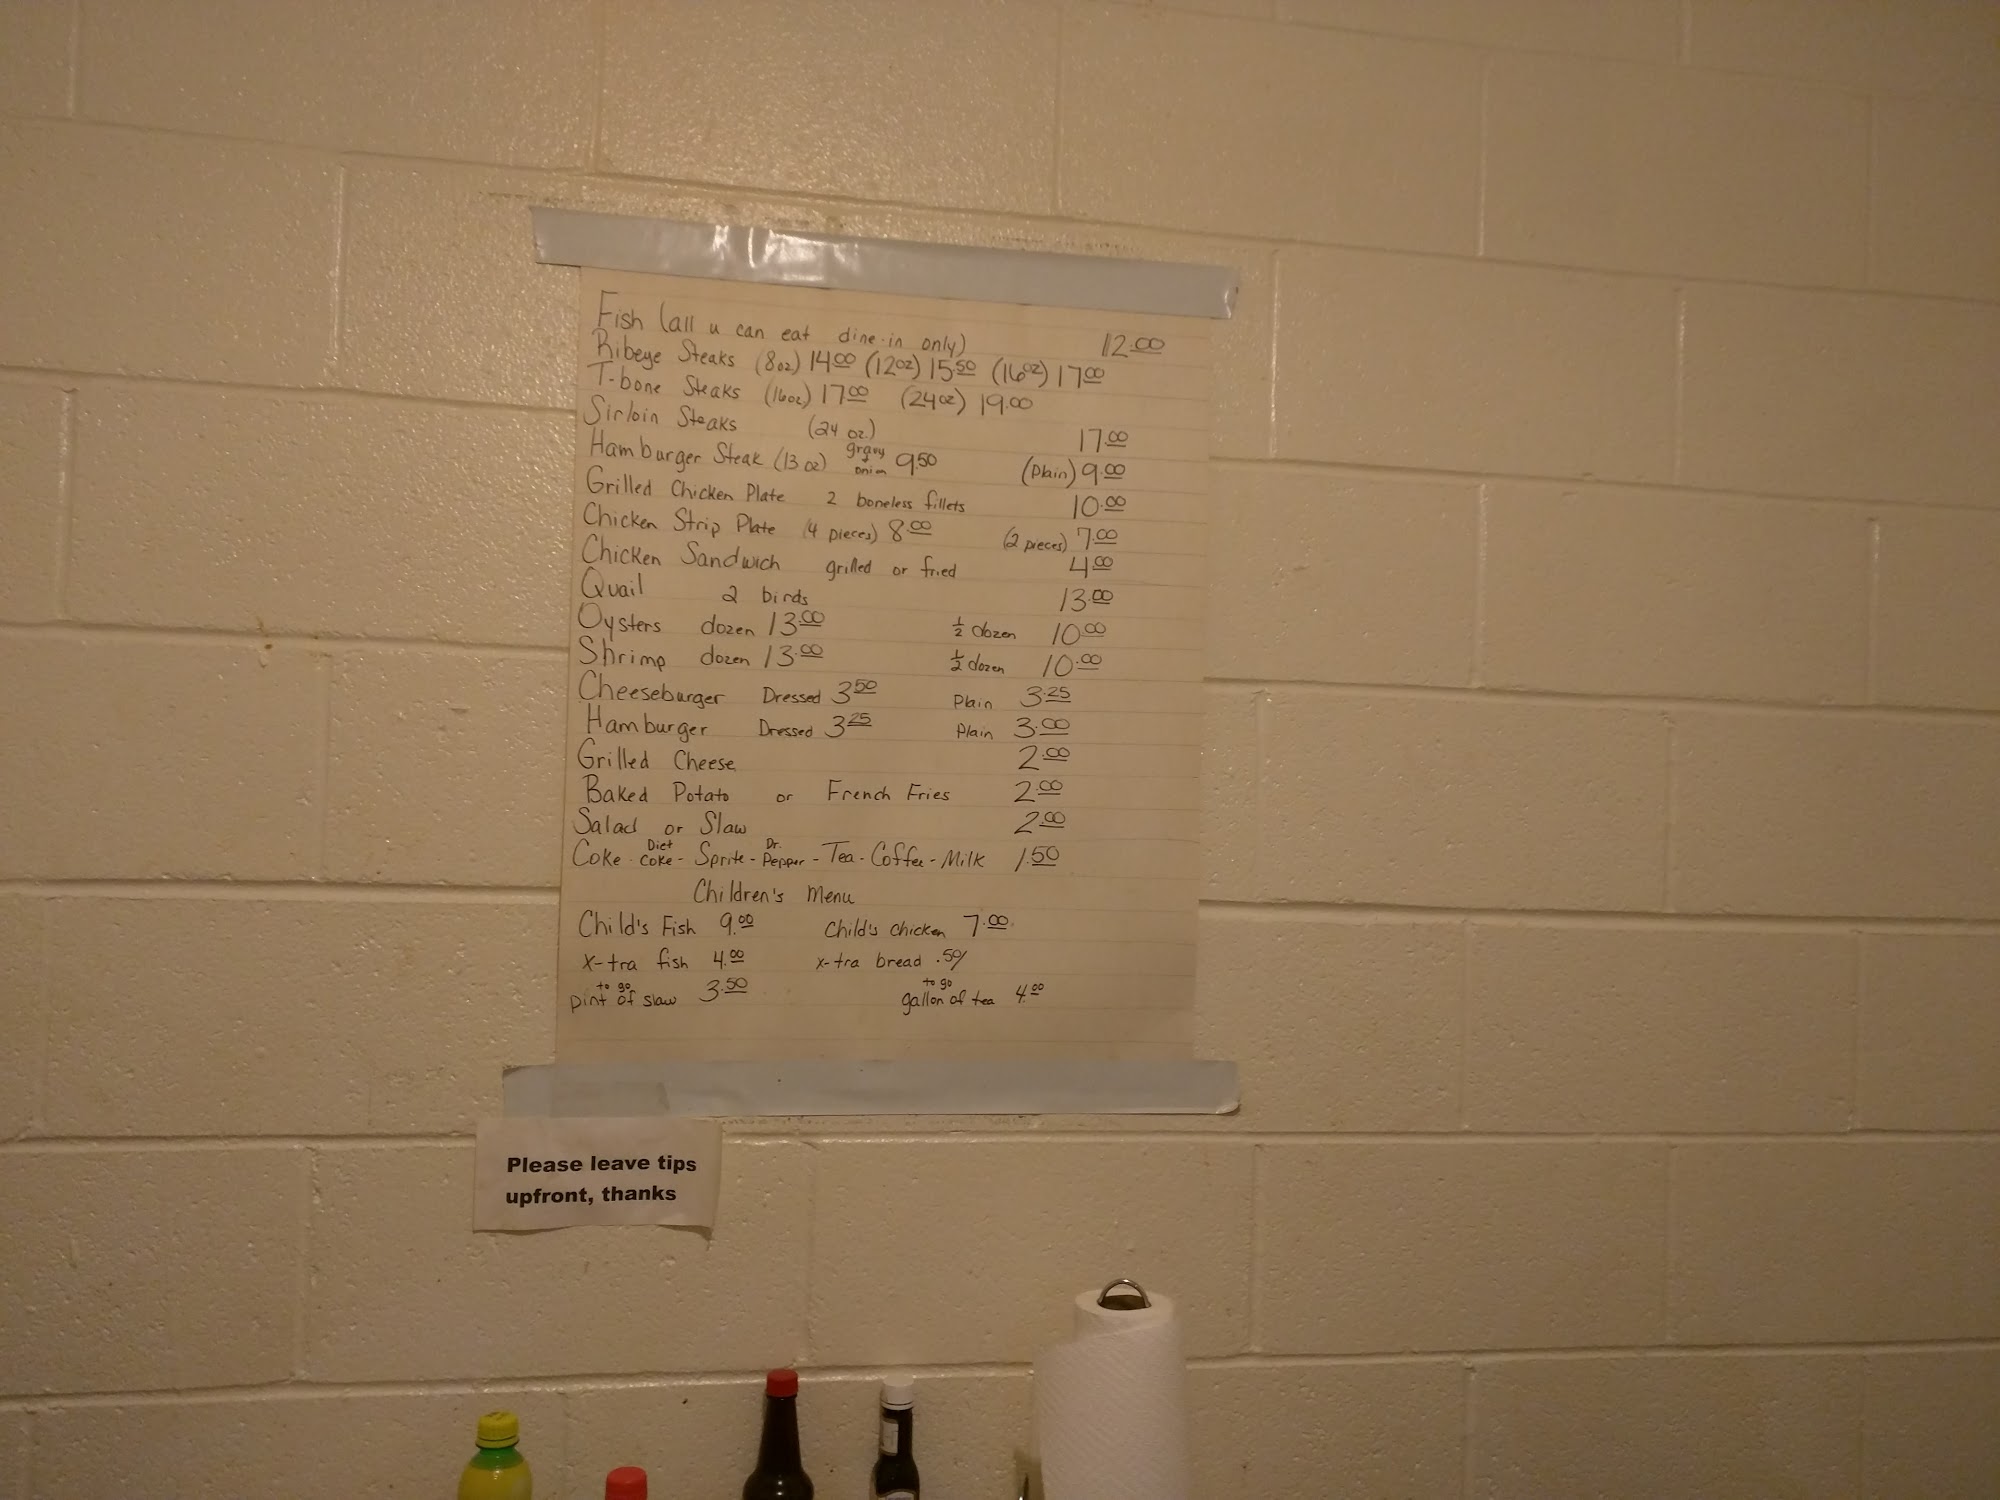 Fish (all u can eat dine-in only) 12.00
Ribeye Steaks (8oz) 14.00 (12oz) 15.50 (16oz) 17.00
T-bone Steaks (16oz) 17.00 (24oz) 19.00
Sirloin Steaks (24 oz.) 17.00
Hamburger Steak (13 oz) gravy onion 9.50 (Plain) 9.00
Grilled Chicken Plate 2 boneless fillets 10.00
Chicken Strip Plate (4 pieces) 8.00 (2 pieces) 7.00
Chicken Sandwich grilled or fried 4.00
Quail 2 birds 13.00
Oysters dozen 13.00 ½ dozen 10.00
Shrimp dozen 13.00 ½ dozen 10.00
Cheeseburger Dressed 3.50 Plain 3.25
Hamburger Dressed 3.25 Plain 3.00
Grilled Cheese 2.00
Baked Potato or French Fries 2.00
Salad or Slaw 2.00
Coke - Diet Coke - Sprite - Dr. Pepper - Tea - Coffee - Milk 1.50
Children's Menu
Child's Fish 9.00 Child's Chicken 7.00
X-tra fish 4.00 X-tra bread .50
to go pint of slaw 3.50 to go gallon of tea 4.00
Please leave tips
upfront, thanks